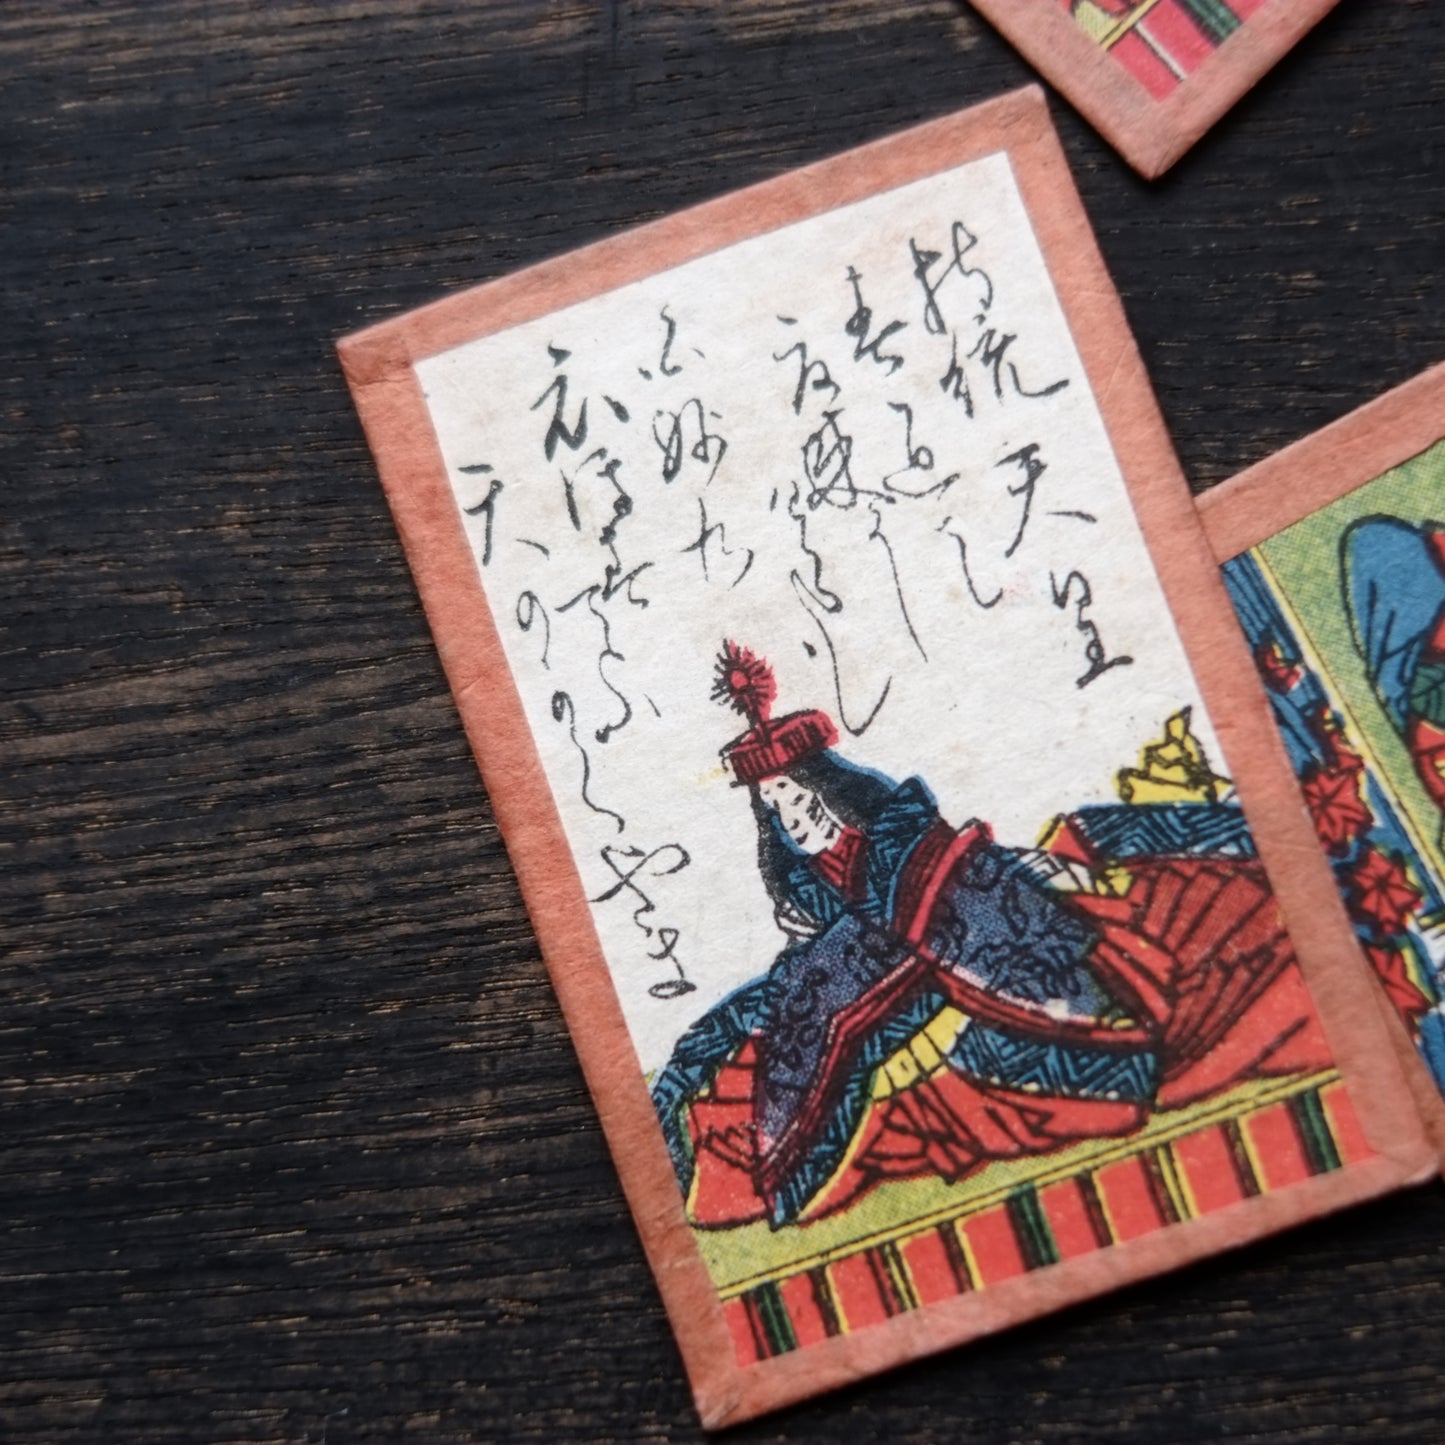 持統天皇
春過て
夏来にけらし
白妙の
衣ほすてふ
天のかくやま